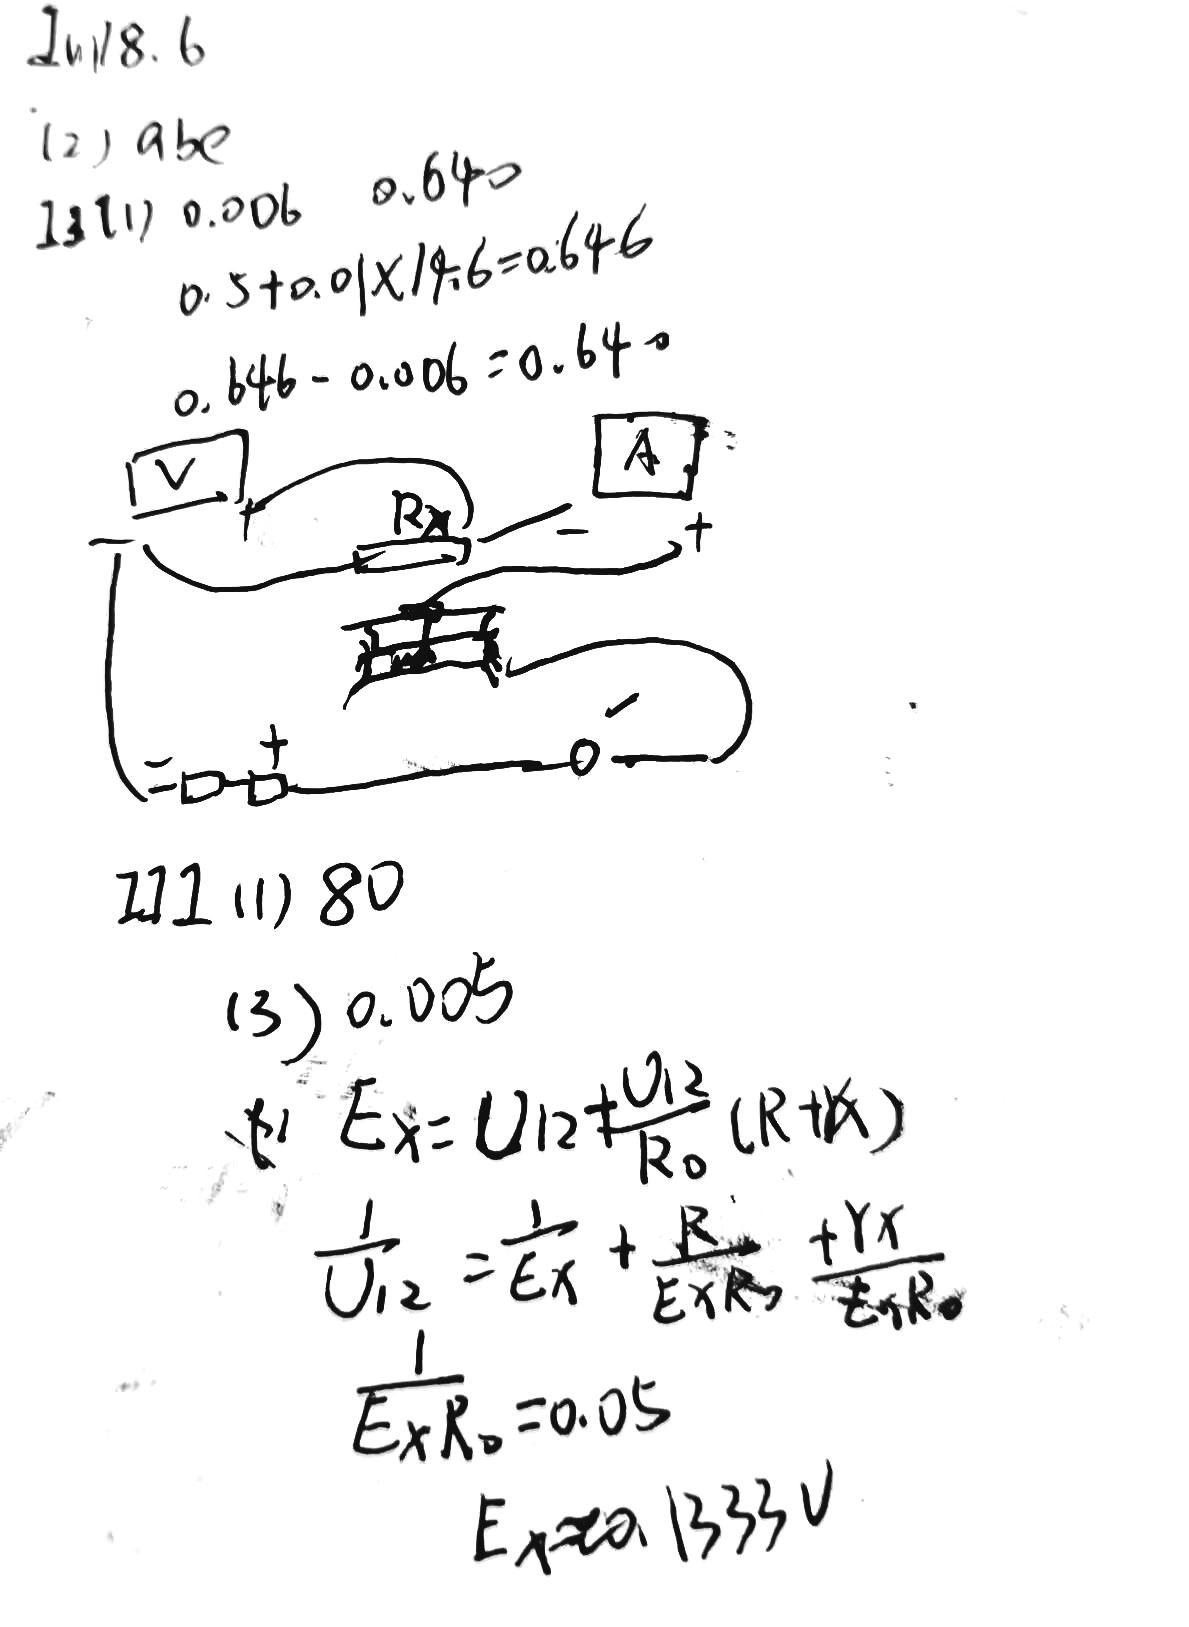 I(1)8.6
(2) abe
II(1) 0.006 0.640
0.5+0.01×14.6=0.646
0.646-0.006=0.640
V A
+ Rx - +
-
- +
III (1) 80
(3) 0.005
Ex=U12+U12/R0(R+rx)
1/U12=1/Ex+R/ExR0+rx/ExR0
1/ExR0=0.05
Ex≈0.1333V